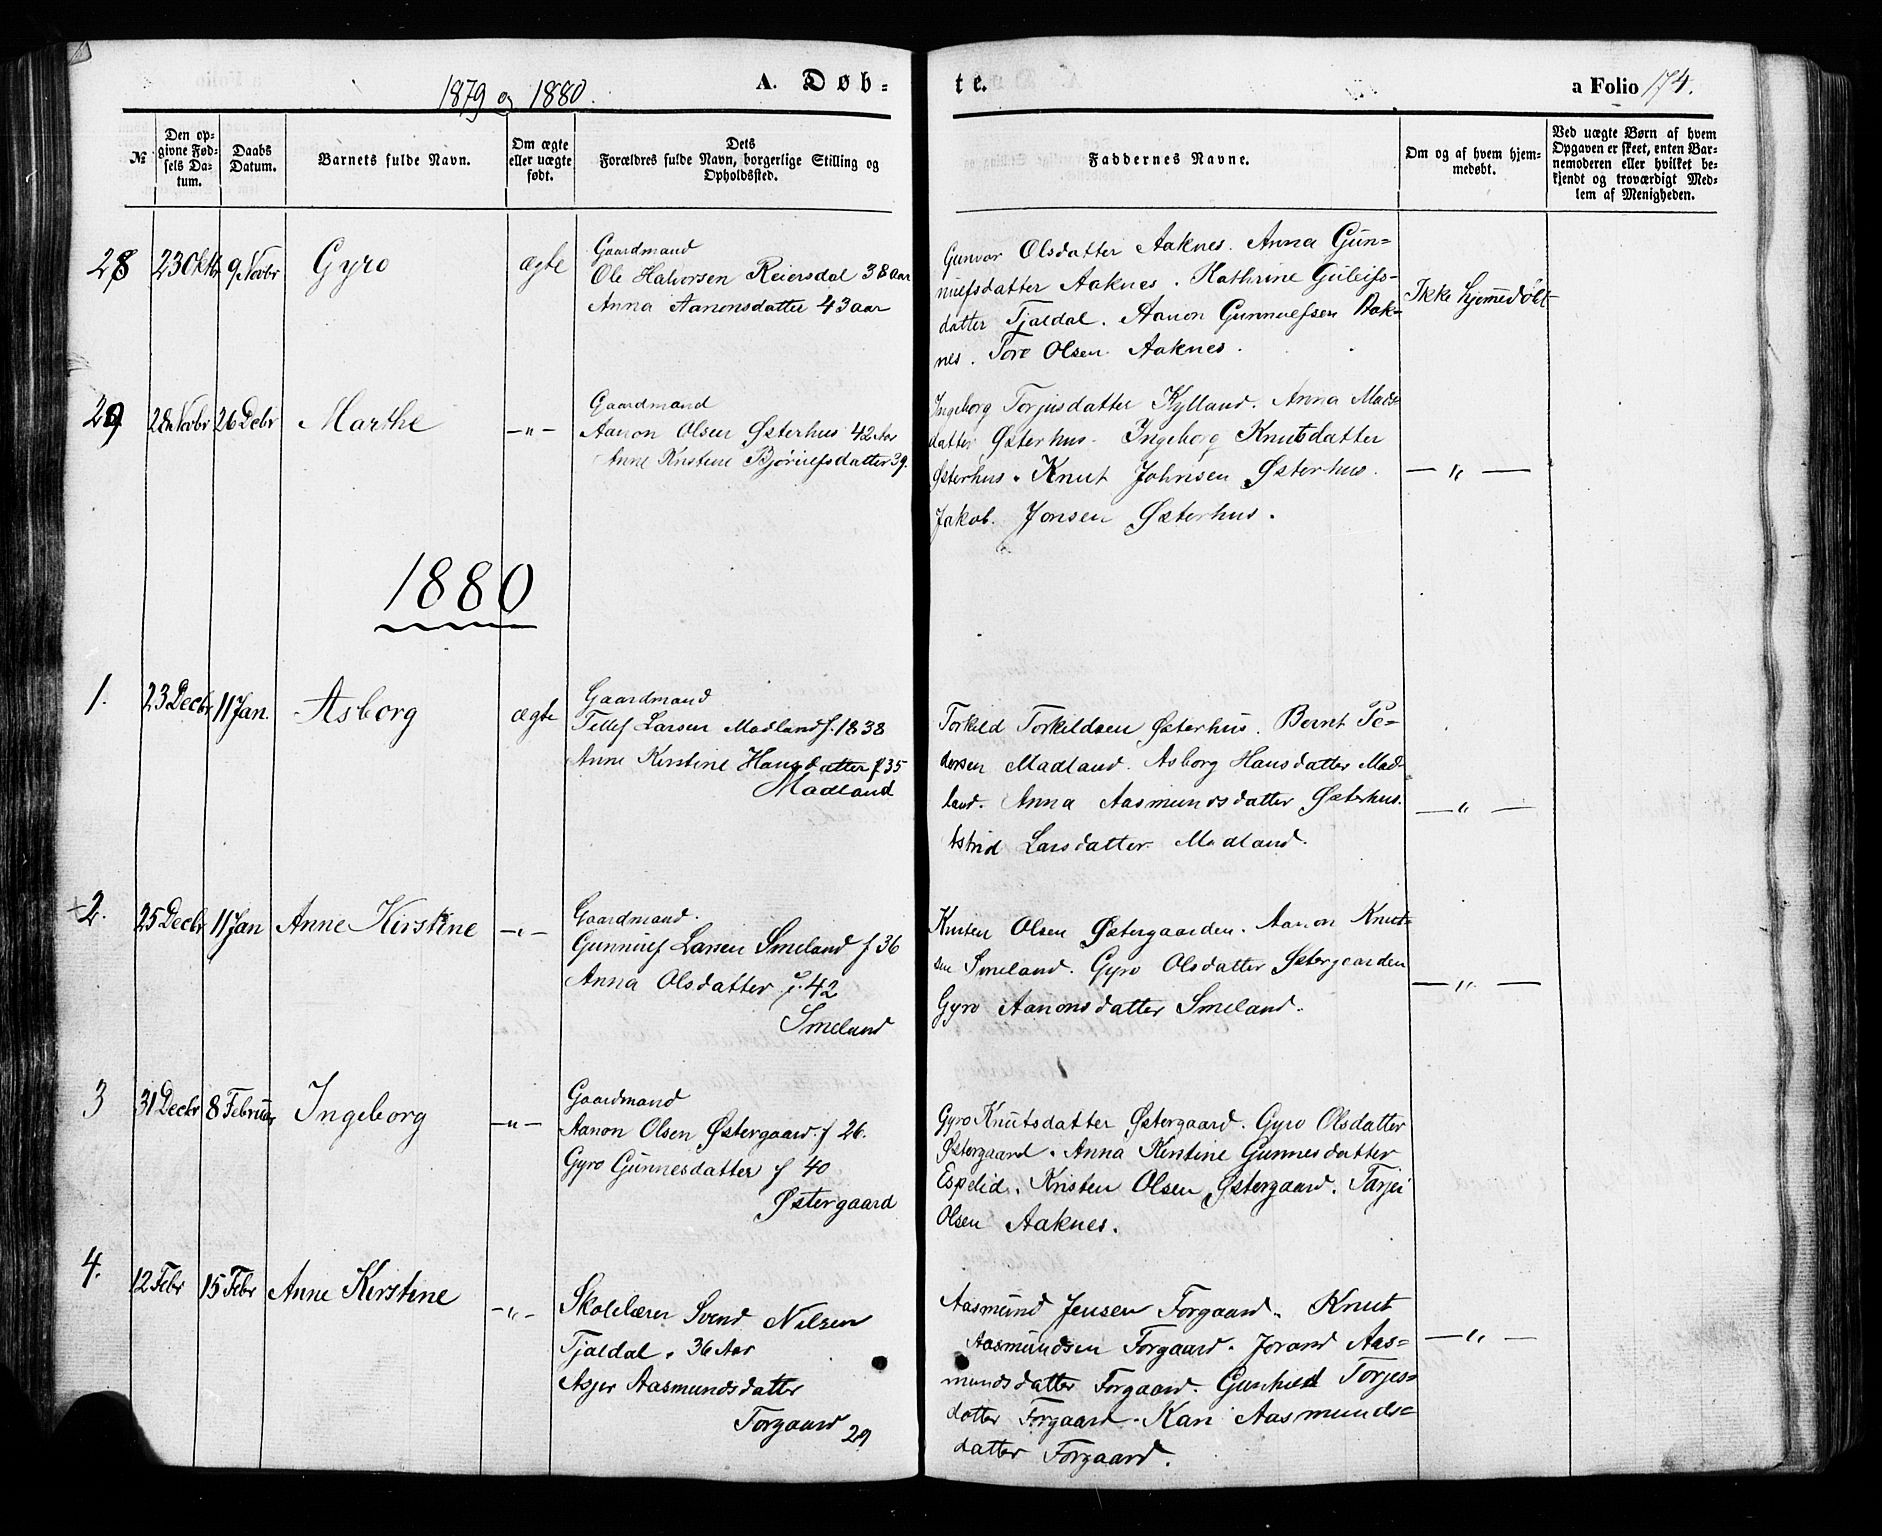 1879 og 1880.
A. Døb-
te.
a Folio 174.
№
Den opgivne Fødsels Datum.
Daabs Datum.
Barnets fulde Navn.
Om ægte eller uægte født.
Dets Forældres fulde Navn, borgerlige Stilling og Opholdssted.
Faddernes Navne.
Om og af hvem hjemmedøbt.
Ved uægte Børn af hvem Opgaven er skeet, enten Barnemoderen eller hvilket bekjendt og troværdigt Medlem af Menigheden.
28 23 Oktbr 9 Novbr Gyro ægte
Gaardmand
Ole Halvorsen Reiersdal 38 aar
Anna Aanonsdatter 43 aar
Gunvor Olsdatter Aaknes. Anna Gun=
nulfsdatter Aaknes. Kathrine Guleifs-
datter Tjaldal. Aanon Gunnulfsen Aak-
nes. Tore Olsen Aaknes.
Ikke hjemmedøbt
29 28 Novbr 26 Debr Marthe —"—
Gaardmand
Aanon Olsen Østerhus 42 Aar
Anne Kristine Bjørnulfsdatter 39.
Ingeborg Torjusdatter Kylland. Anna Mads-
datter Østerhus. Ingeborg Knutsdatter
Østerhus. Knut Johnsen Østerhus.
Jakob Jonsen Østerhus.
— " —
1880
1. 23 Decbr 11 Jan. Asborg ægte
Gaardmand
Tellef Larsen Madland f. 1838
Anne Kirstine Hansdatter f 35
Madland
Torkild Torkildsen Østerhus. Bernt Pe-
dersen Madland. Asborg Hansdatter Mad-
land. Anna Aasmundsdatter Østerhus.
Astrid Larsdatter Madland.
— " —
2. 25 Decbr 11 Jan Anne Kirstine —"—
Gaardmand.
Gunnulf Larsen Smeland f 36
Anna Olsdatter f. 42
Smeland
Kristen Olsen Østergaarden. Aanon Knut-
sen Smeland. Gyro Olsdatter Østergaarden
Gyro Aanonsdatter Smeland.
— " —
3 31 Decbr 8 Februar Ingeborg —"—
Gaardmand
Aanon Olsen Østergaard f 26.
Gyro Gunnesdatter f 40
Østergaard
Gyro Knutsdatter Østergaard. Gyro Olsdatter
Østergaard. Anna Kirstine Gunnesdatter
Espelid. Kristen Olsen Østergaard. Tarjei
Olsen Aaknes.
4. 12 Febr 15 Febr Anne Kirstine —"—
Skolelærer Svend Nilsen
Tjaldal. 36 Aar
Asjer Aasmundsdatter
Forgaard 29
Aasmund Jensen Forgaard. Knut
Aasmundsen Forgaard. Jorand Aas=
mundsdatter Forgaard. Gunhild Torjes-
datter Forgaard. Kari Aasmunds=
datter Forgaard.
— " —